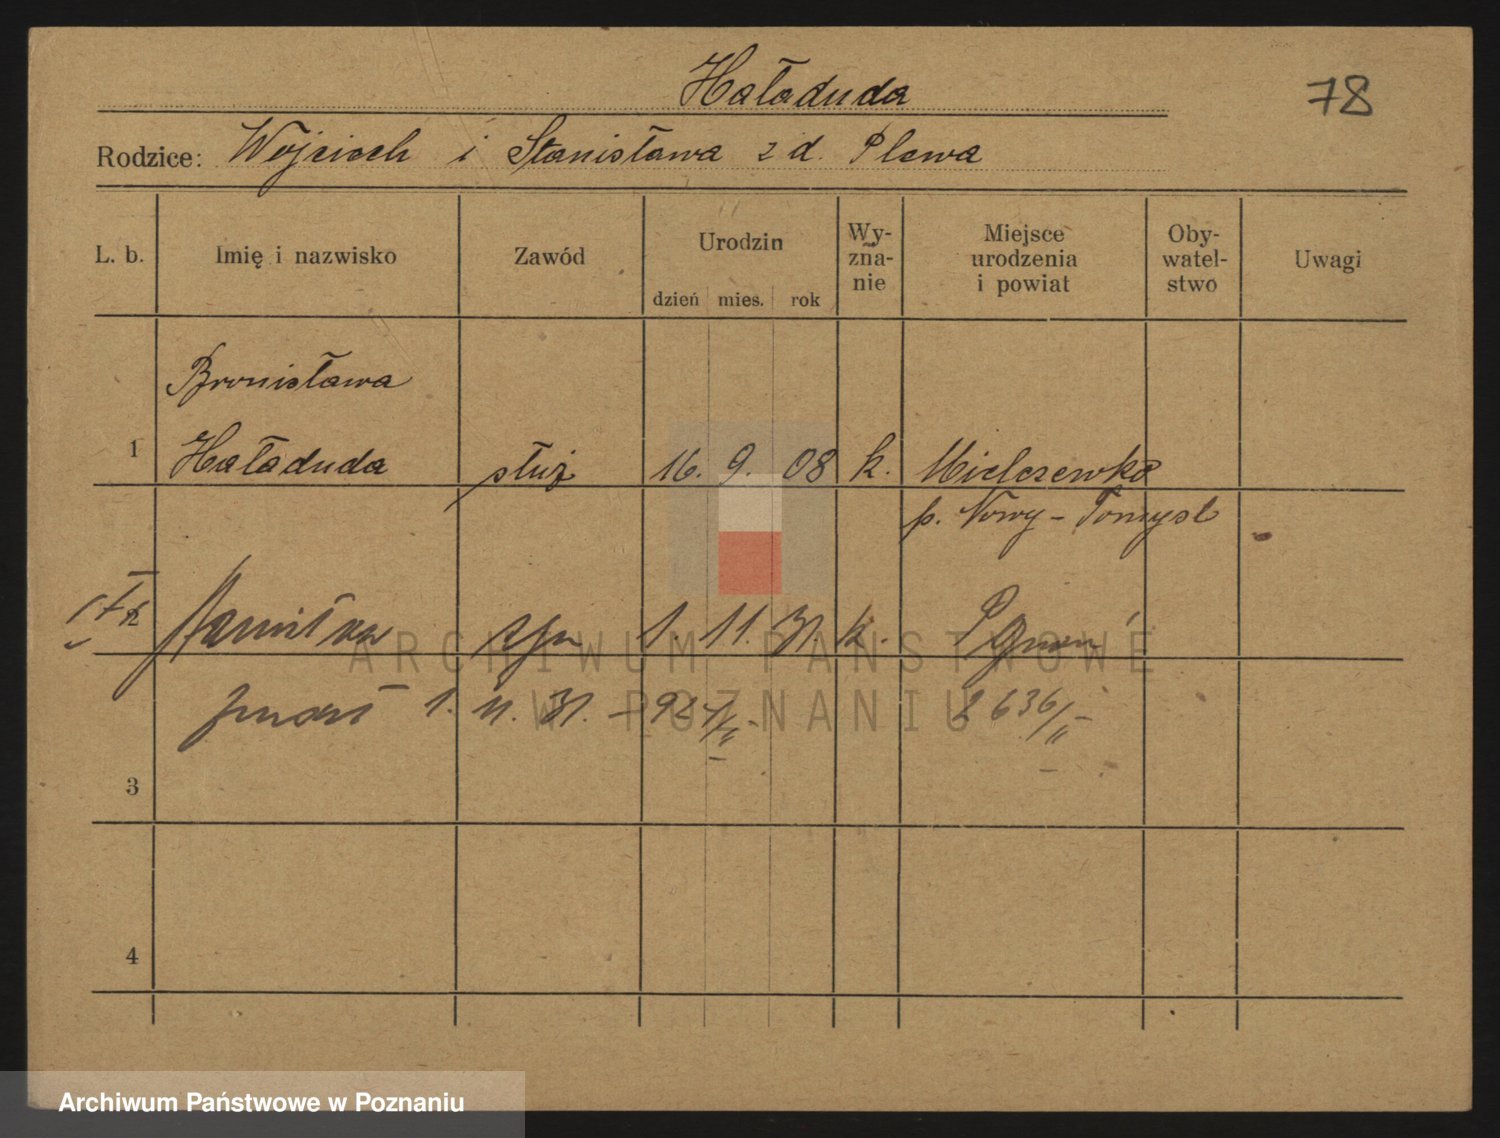 Haładuda
78
Rodzice: Wojciech i Stanisława z d. Plewa
L. b. Imię i nazwisko Zawód Urodzin Wy-zna-nie Miejsce urodzenia i powiat Oby-watel-stwo Uwagi
dzień mies. rok
Bronisława
1 Haładuda służ 16. 9. 08 k. Mielczewko
p. Nowy-Tomysl
2 Stanisław syn 1. 11. 31. k.
zmarł 1. 11. 31. 2636/II
3
4
ARCHIWUM PAŃSTWOWE
W POZNANIU
Archiwum Państwowe w Poznaniu